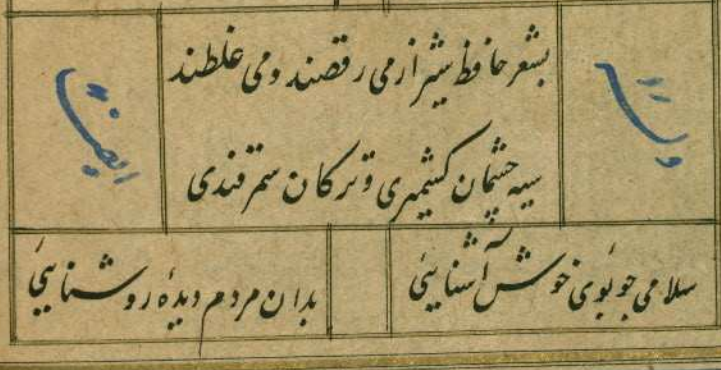 بشعر حافظ شیراز می رقصند و می غلطند
سیه چشمان کشمیری و ترکان سمرقندی
وله
ایضاً
سلامی چو بوی خوش آشنایئ
بدان مردم دیدۀ روشنایئ